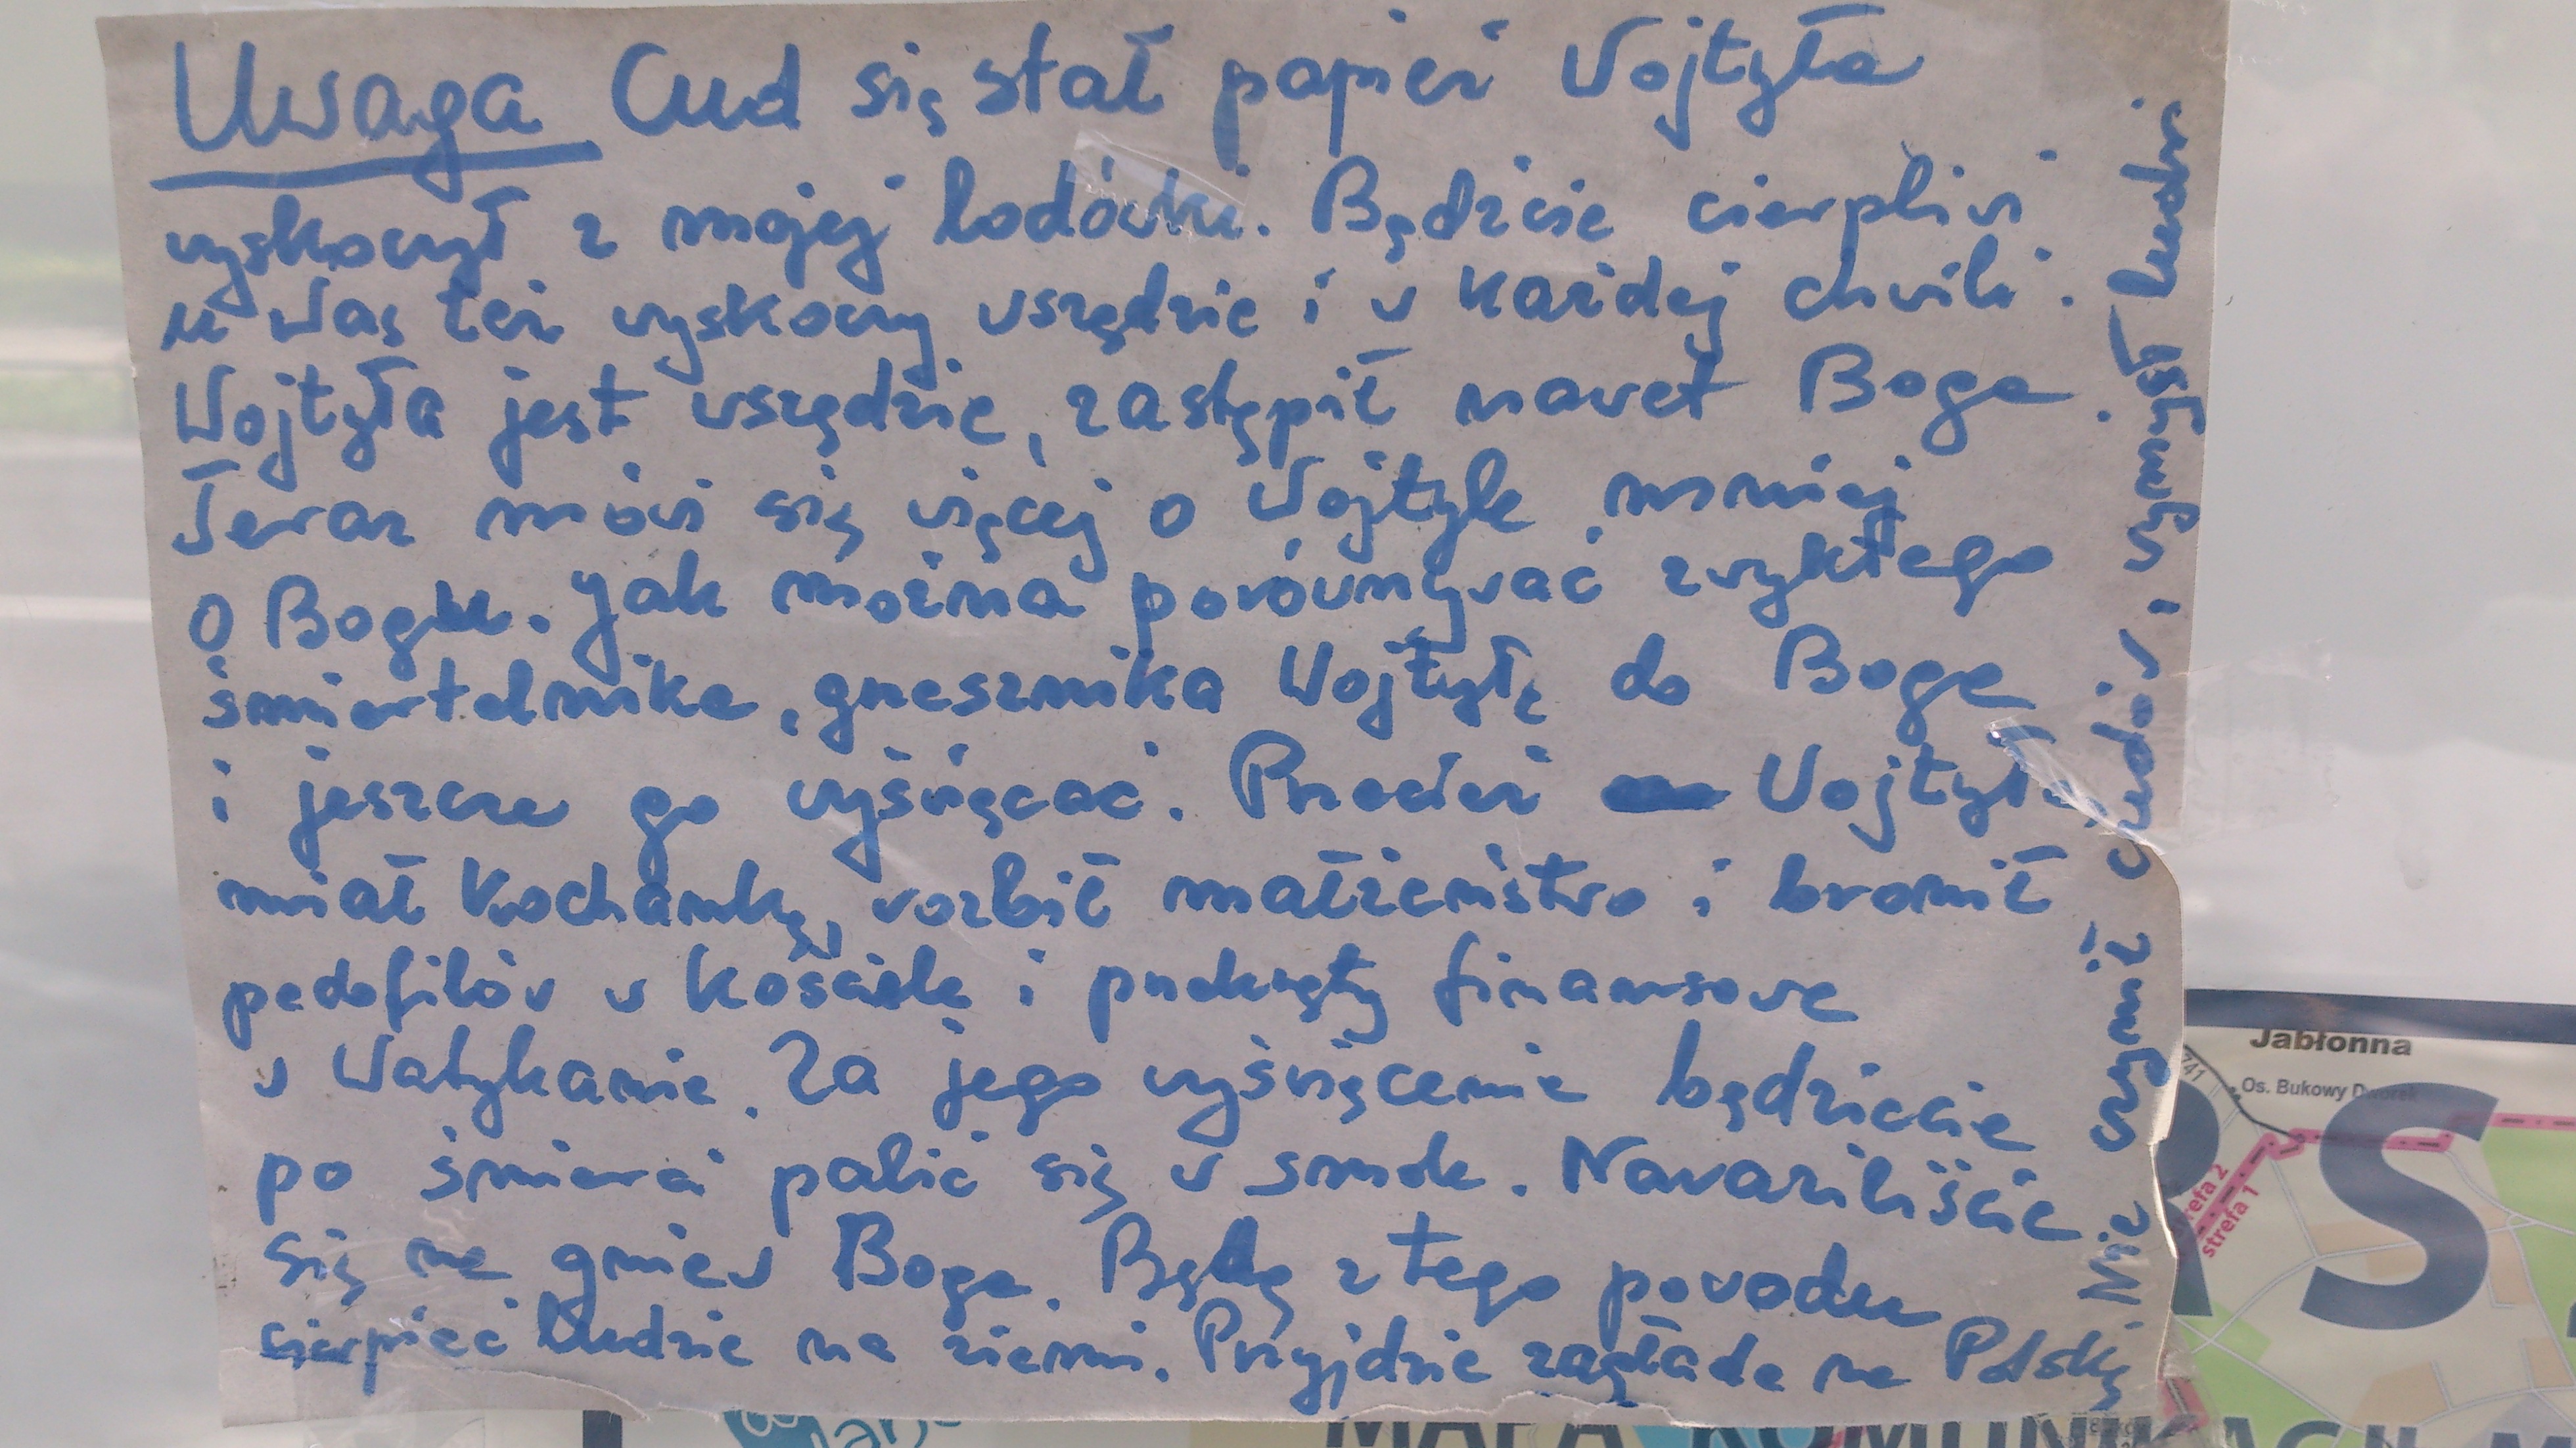 Uwaga Cud się stał papież Wojtyła
wyskoczył z mojej lodówki. Bądźcie cierpliwi
u Was też wyskoczy wszędzie i w każdej chwili.
Wojtyła jest wszędzie, zastąpił nawet Boga
Teraz mówi się więcej o Wojtyle, mniej
o Bogu. Jak można porównywać zwykłego
śmiertelnika, grzesznika Wojtyłę do Boga
i jeszcze go wyświęcać. Przecież Wojtyła
miał kochankę, rozbił małżeństwo i bronił
pedofilów w kościele i przekręty finansowe
w Watykanie. Za jego wyświęcenie będziecie
po śmierci palić się w smole. Nawarzyliście
się na gniew Boga. Będą z tego powodu
cierpieć Ludzie na ziemi. Przyjdzie zagłada na Polskę.
Nie czynił cudów, wymysł ludzi
Jabłonna
741
Os. Bukowy Dworek
strefa 2
strefa 1
RS
MAPA KOMUNIKACJI M